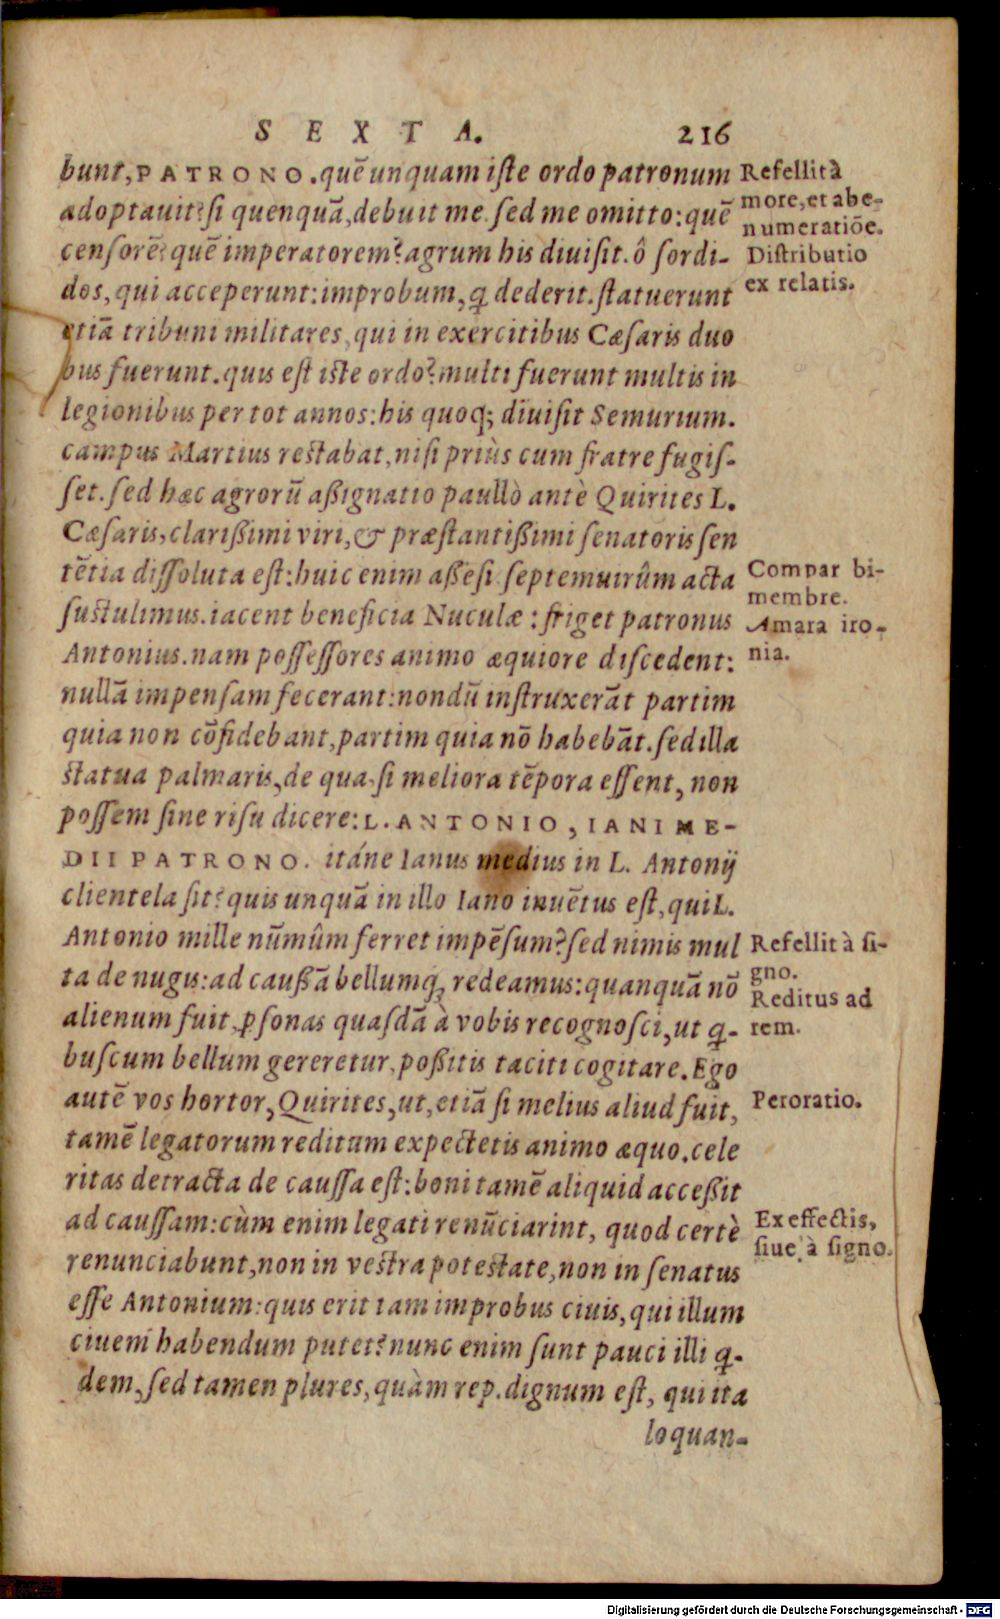 SEXTA. 216
bunt, PATRONO. quē unquam iſte ordo patronum
adoptauit? ſi quenquā, debuit me. ſed me omitto: quē
cenſorē? quē imperatorem? agrum his diuiſit. ô ſordi-
dos, qui acceperunt: improbum, q dederit. ſtatuerunt
etiā tribuni militares, qui in exercitibus Cæſaris duo
bus fuerunt. quis eſt iſte ordo? multi fuerunt multis in
legionibus per tot annos: his quoq; diuiſit Semurium.
campus Martius reſtabat, niſi priùs cum fratre fugiſ-
ſet. ſed hæc agrorū aßignatio paullò antè Quirites L.
Cæſaris, clarißimi viri, & præſtantißimi ſenatoris ſen
tētia diſſoluta eſt: huic enim aßeſi ſeptemuirûm acta
ſuſtulimus. iacent beneficia Nuculæ: friget patronus
Antonius. nam poſſeſſores animo æquiore diſcedent:
nullā impenſam fecerant: nondū inſtruxerāt partim
quia non cōfidebant, partim quia nō habebāt. ſed illa
ſtatua palmaris, de qua, ſi meliora tēpora eſſent, non
poſſem ſine riſu dicere: L. ANTONIO, IANI ME-
DII PATRONO. itáne Ianus medius in L. Antonij
clientela ſit? quis unquā in illo Iano inuētus eſt, qui L.
Antonio mille nūmûm ferret impēſum? ſed nimis mul
ta de nugis: ad caußā bellumq; redeamus: quanquā nō
alienum fuit, pſonas quaſdā à vobis recognoſci, ut q-
buſcum bellum gereretur, poßitis taciti cogitare. Ego
autē vos hortor, Quirites, ut, etiā ſi melius aliud fuit,
tamē legatorum reditum expectetis animo æquo. cele
ritas detracta de cauſſa eſt: boni tamē aliquid acceßit
ad cauſſam: cùm enim legati renūciarint, quod certè
renunciabunt, non in veſtra poteſtate, non in ſenatus
eſſe Antonium: quis erit tam improbus ciuis, qui illum
ciuem habendum putet? nunc enim ſunt pauci illi q-
dem, ſed tamen plures, quàm rep. dignum eſt, qui ita
loquan-
Refellit à
more, et ab e-
numeratiōe.
Diſtributio
ex relatis.
Compar bi-
membre.
Amara iro-
nia.
Refellit à ſi-
gno.
Reditus ad
rem.
Peroratio.
Ex effectis,
ſiue à ſigno.
Digitalisierung gefördert durch die Deutsche Forschungsgemeinschaft - DFG